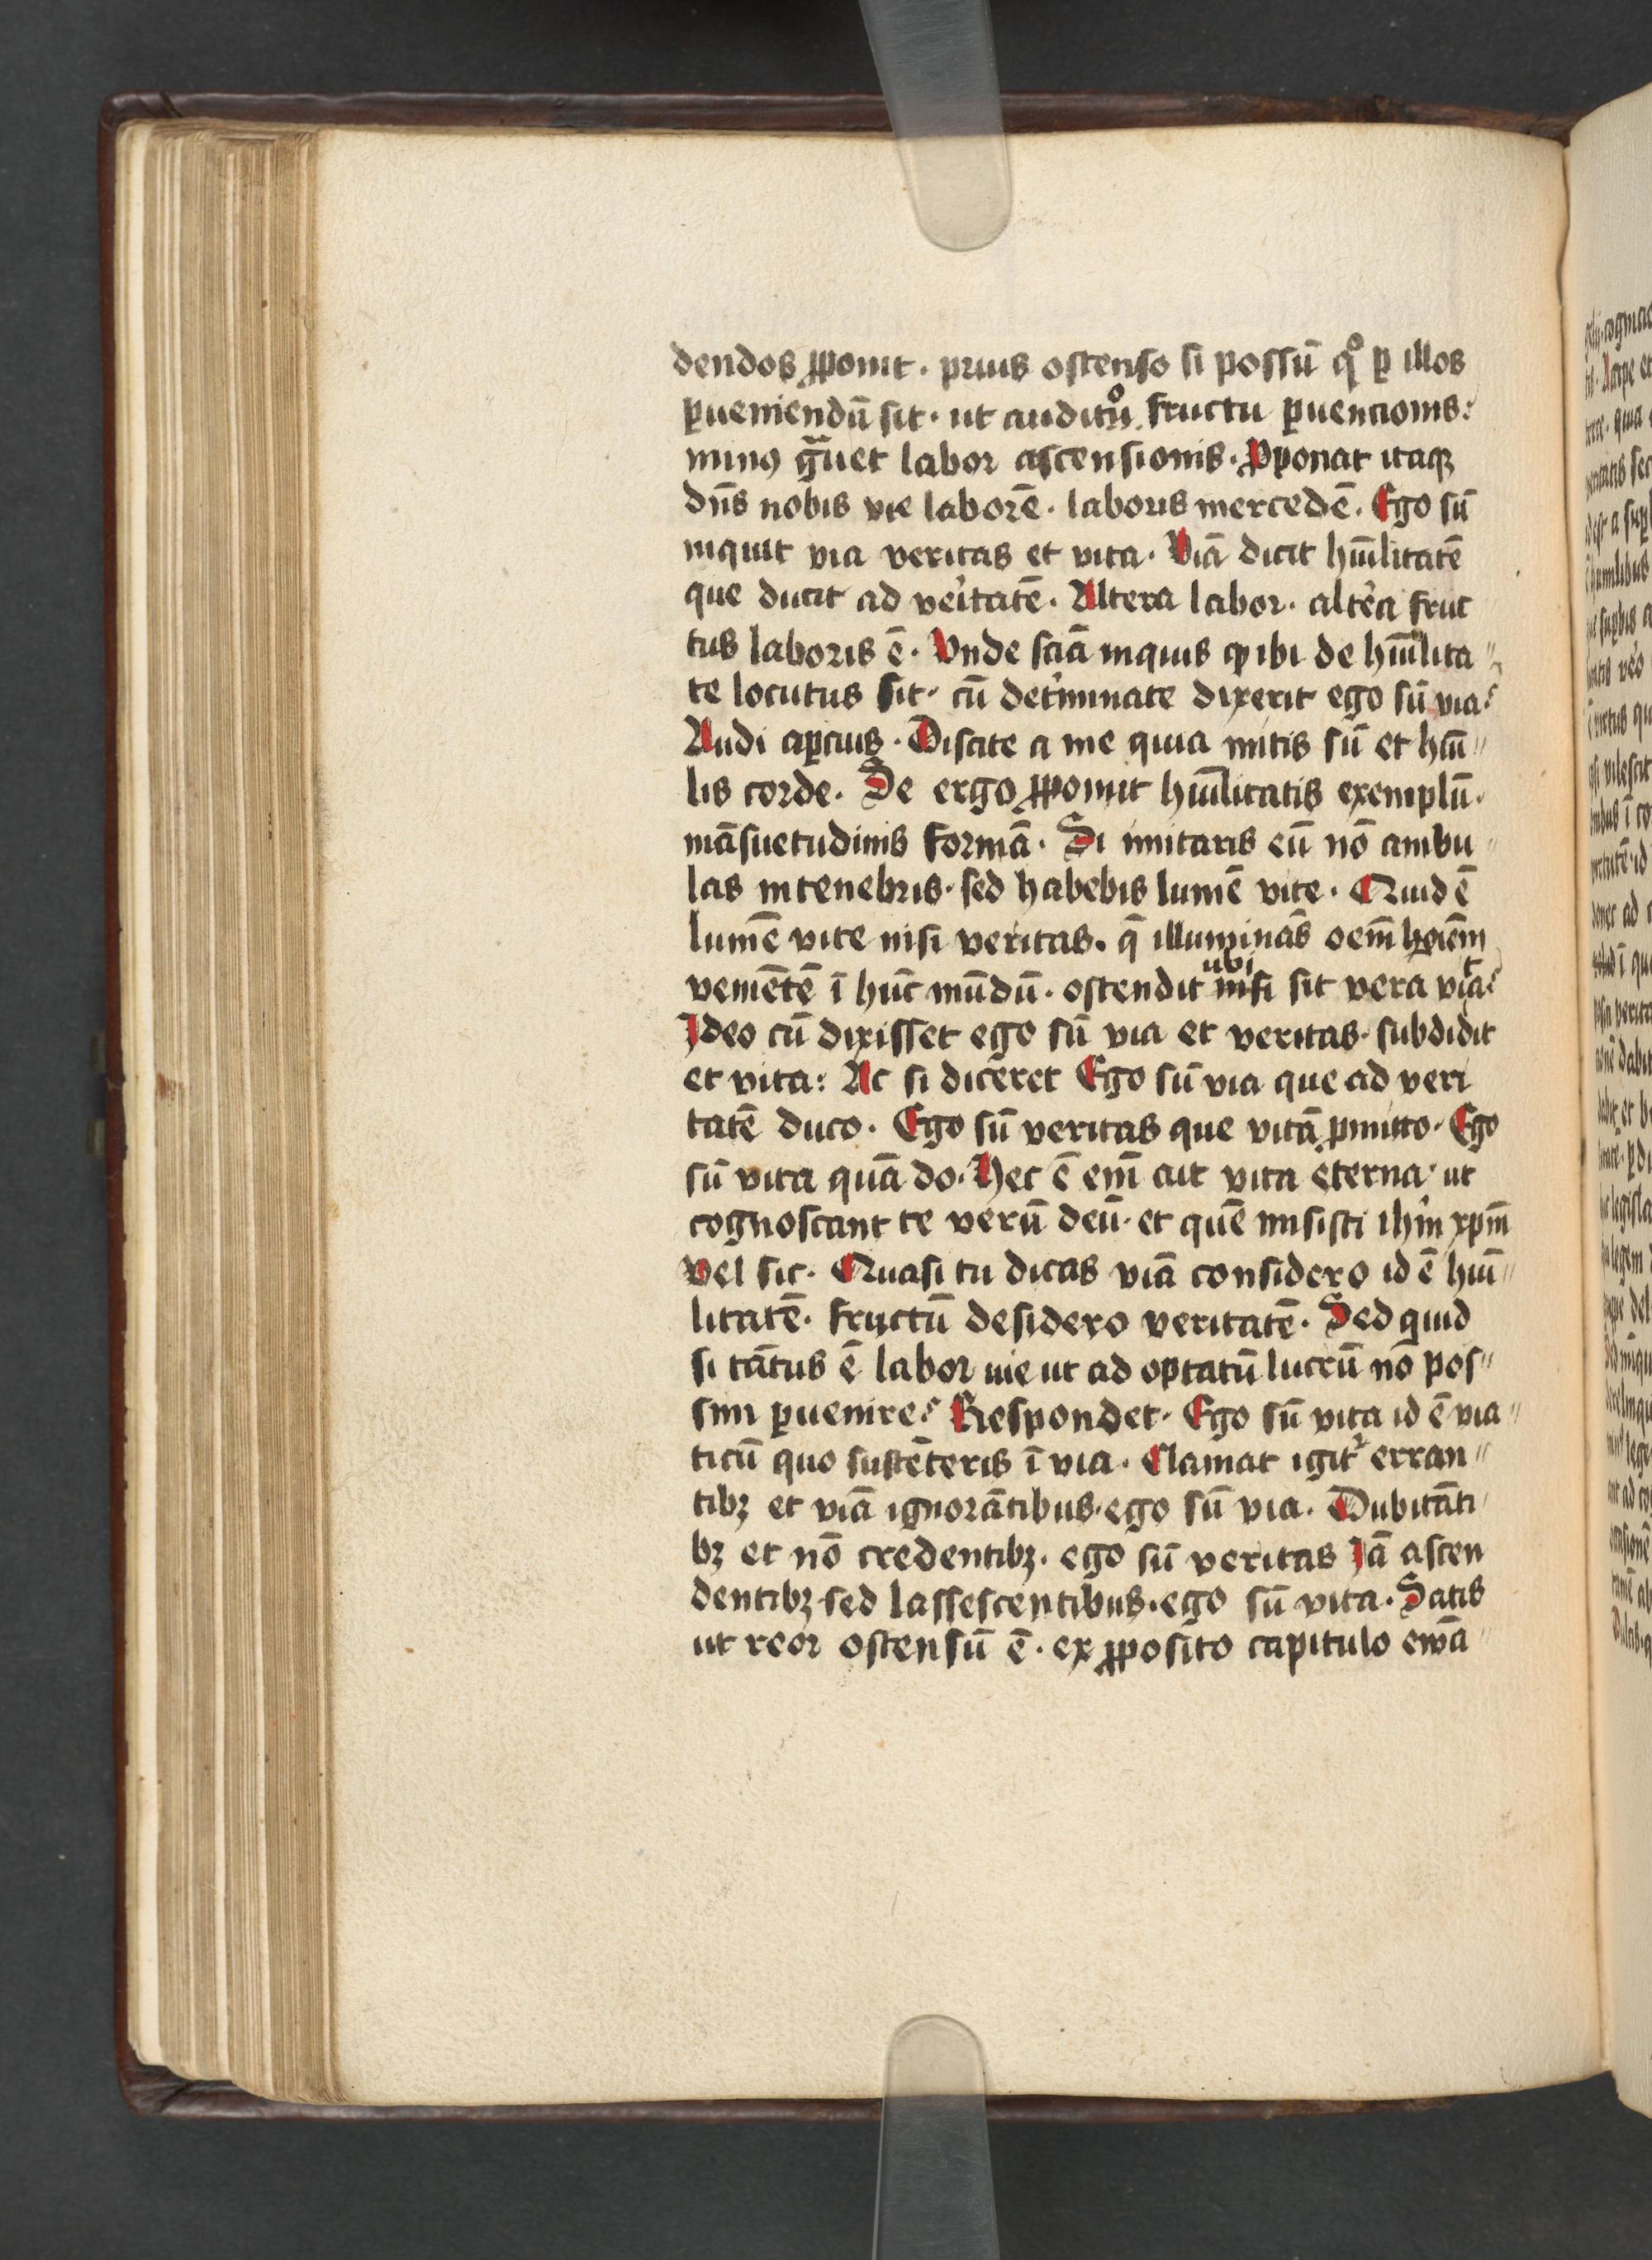 dendos ꝓponit. prius ostenso si possū qͦ ꝑ illos
ꝑueniendū sit. ut auditͦ fructu ꝑuencionis:
minꝰ gͣuet labor ascensionis. Ꝓponat itaqꝫ
dn̄s nobis vie laborē. laboris mercedē. Ego sū
inquit via veritas et vita. Viā dicit hūilitatē
que ducit ad veritatē. Altera labor. altera fruc
tus laboris ē. Vnde sciā inquis ꝙ ibi de hūilita〃
te locutus sit. cū det'minate dixerit ego sū via?
Audi aꝑcius. Discite a me quia mitis sū et hūi〃
lis corde. Se ergo ꝓponit hūilitatis exemplū.
māsuetudinis formā. Si imitaris eū nō ambu〃
las in tenebris. sed habebis lumē vite. Quid ē
lumē vite nisi veritas. q̄ illuminās oēm hoiēm
veniētē ī hūc mūdū. ostendit ubi nisi sit vera vita?
Ideo cū dixisset ego sū via et veritas. subdidit
et vita: Ac si diceret Ego sū via que ad veri
tatē duco. Ego sū veritas que vitā ꝓmitto. Ego
sū vita quā do. Hec ē eni̅ ait vita eterna. ut
cognoscant te verū deū. et quē misisti ihm̄ xpm̄
Vel sic. Quasi tu dicas viā considero id ē hūi〃
litatē. fructū desidero veritatē. Sed quid
si tātus ē labor uie ut ad optatū lucrū nō pos〃
sim ꝑuenire? Respondet. Ego sū vita id ē via〃
ticū quo sustēteris ī via. Clamat igit᷑ erran〃
tibꝫ et viā ignorātibus. ego sū via. Dubitāti
bꝫ et nō credentibꝫ. ego sū veritas Jā ascen
dentibꝫ sed lassescentibus. ego sū vita. Satis
ut reor ostensū ē. ex ꝓposito capitulo ewā〃